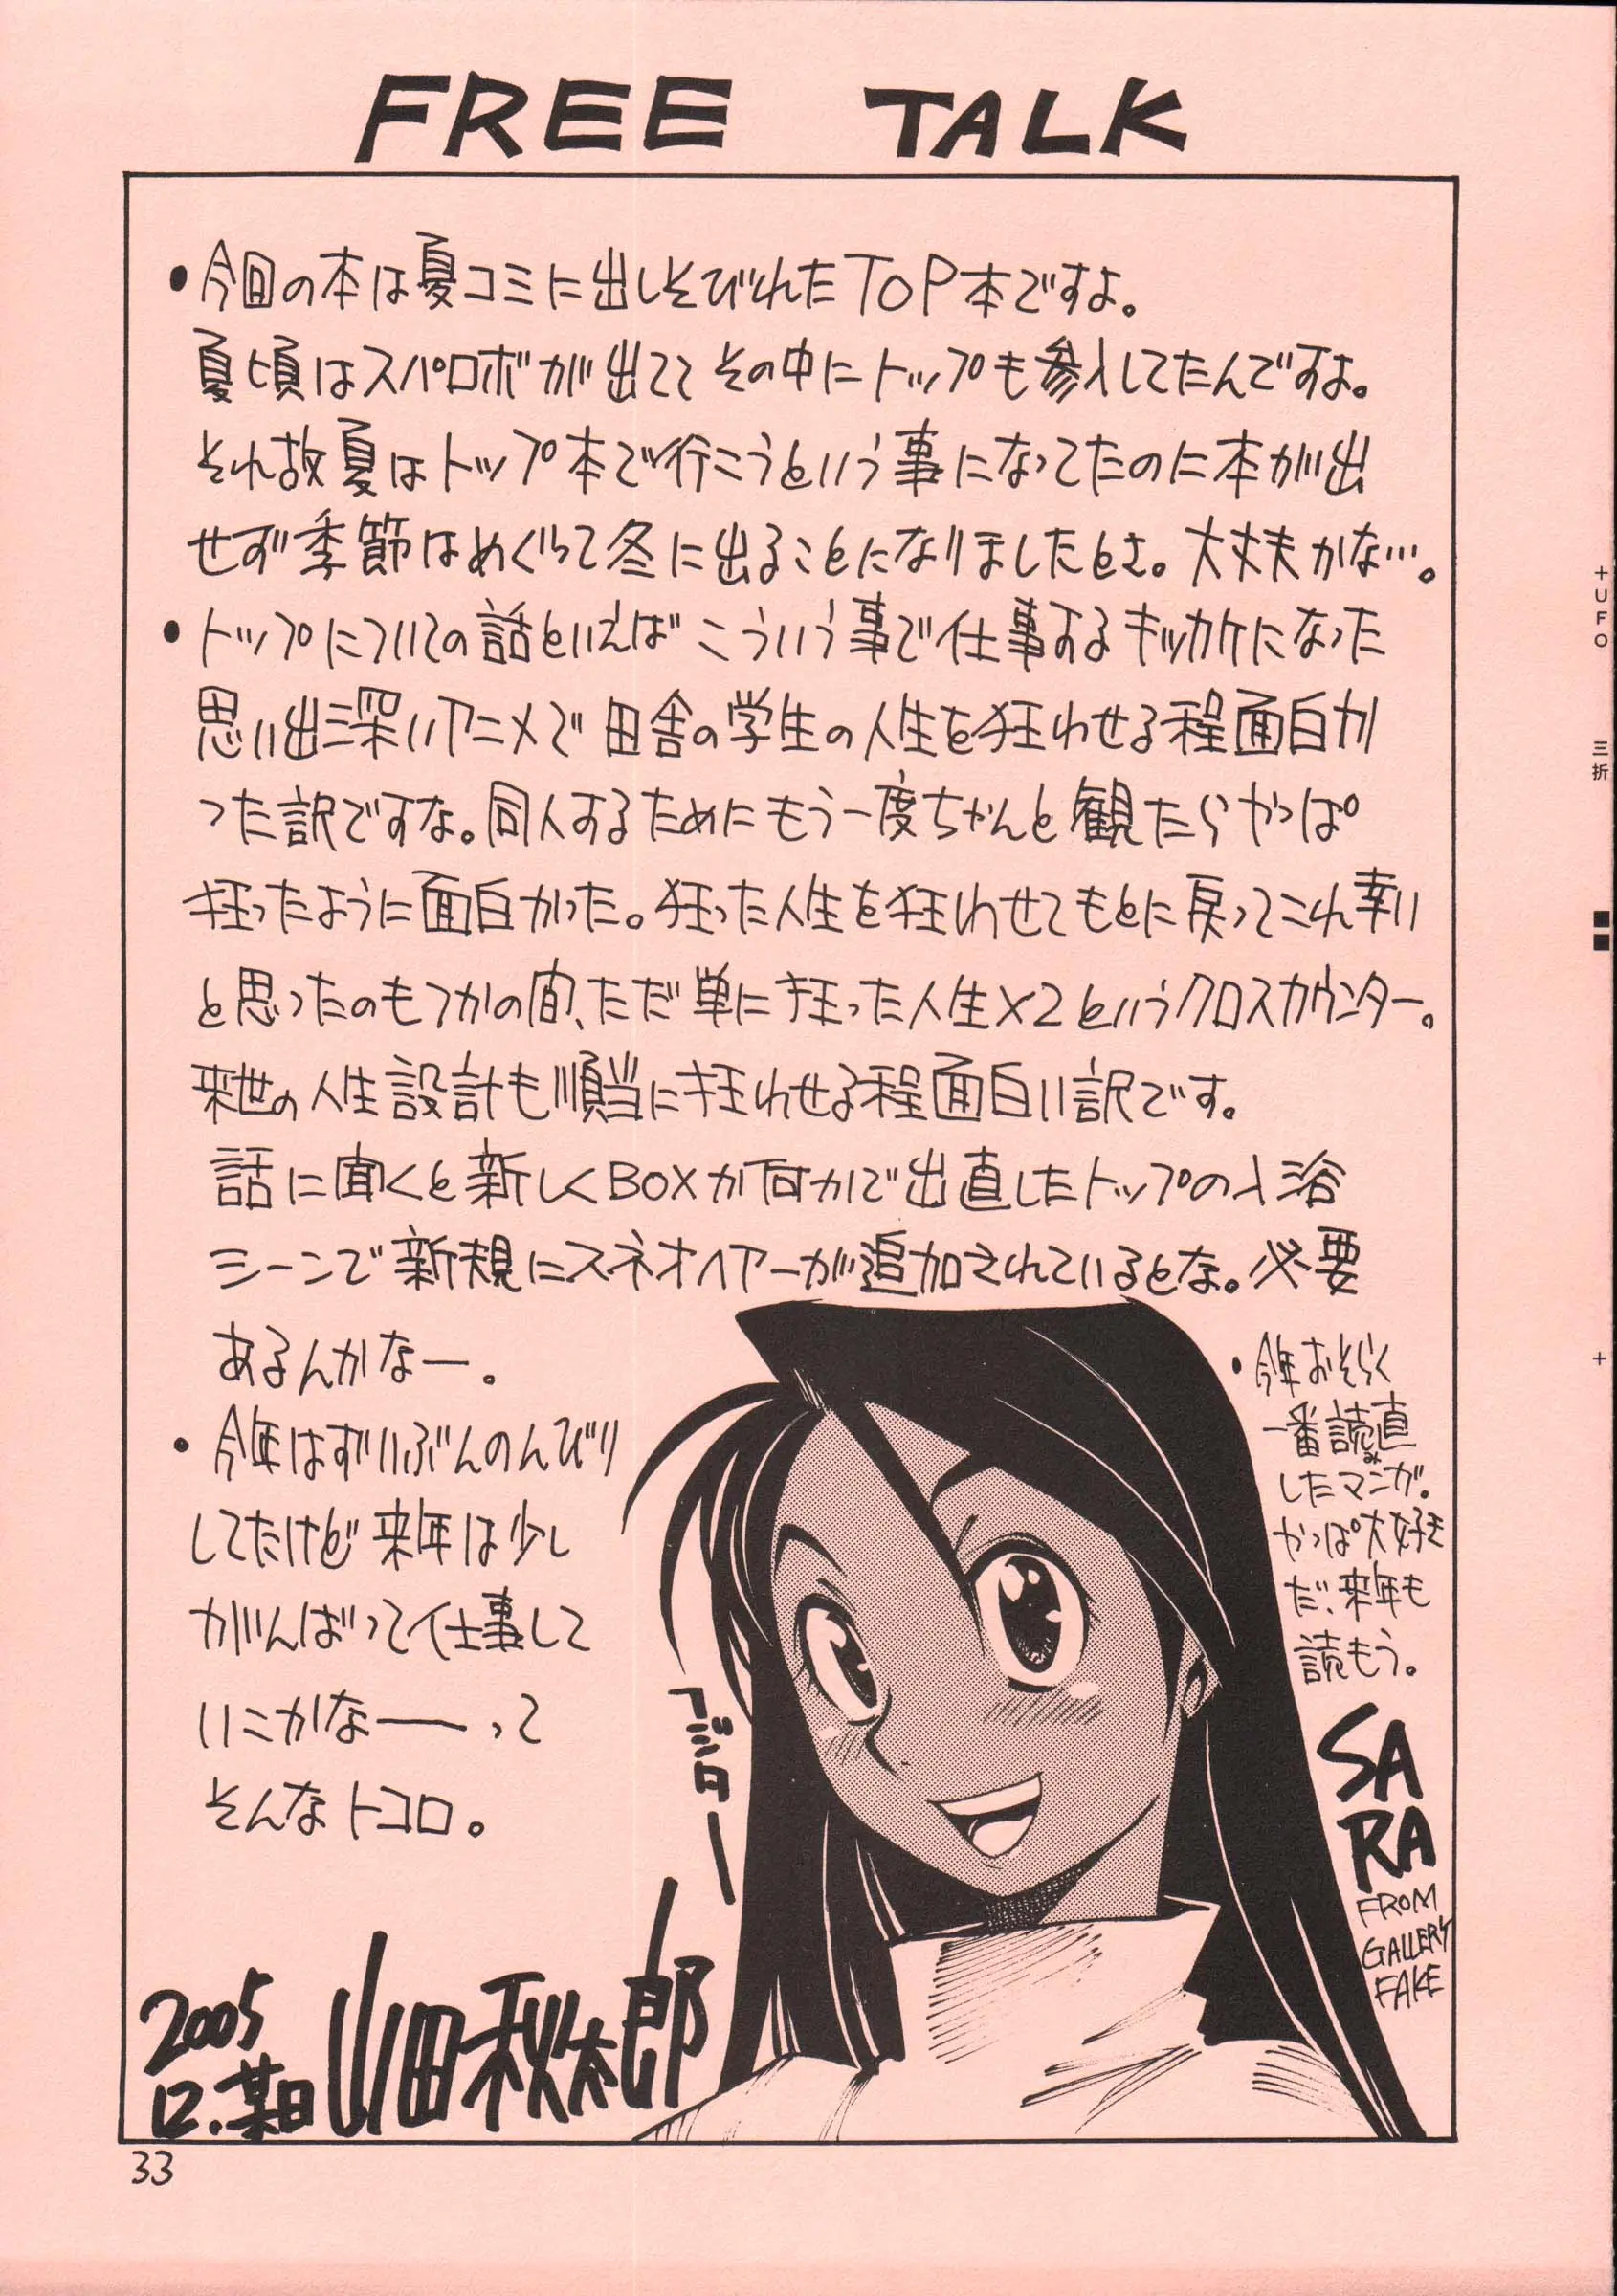 FREE TALK
・今回の本は夏コミに出しそびれたTOP本ですよ。
夏頃はスパロボが出ててその中にトップも参入してたんですよ。
それ故夏はトップ本で行こうという事になってたのに本が出
せず季節はめぐって冬に出ることになりましたとさ。大丈夫かな…。
・トップについての話といえばこういう事で仕事するキッカケになった
思い出深いアニメで田舎の学生の人生を狂わせる程面白か
った訳ですな。同人するためにもう一度ちゃんと観たらやっぱ
狂ったように面白かった。狂った人生を狂わせてもとに戻ってこれ幸い
と思ったのもつかの間、ただ単に狂った人生×2というクロスカウンター。
来世の人生設計も順当に狂わせる程面白い訳です。
話に聞くと新しくBOXか何かで出直したトップの入浴
シーンで新規にスネオヘアーが追加されているとな。必要
あるんかなー。
・今年はずいぶんのんびり
してたけど来年は少し
がんばって仕事して
いこかなーって
そんなトコロ。
・今年おそらく
一番読み直
したマンガ。
やっぱ大好き
だ、来年も
読もう。
SA
RA
FROM
GALLERY
FAKE
フジター
2005
12.某日
山田秋太郎
33
+UFO
三折